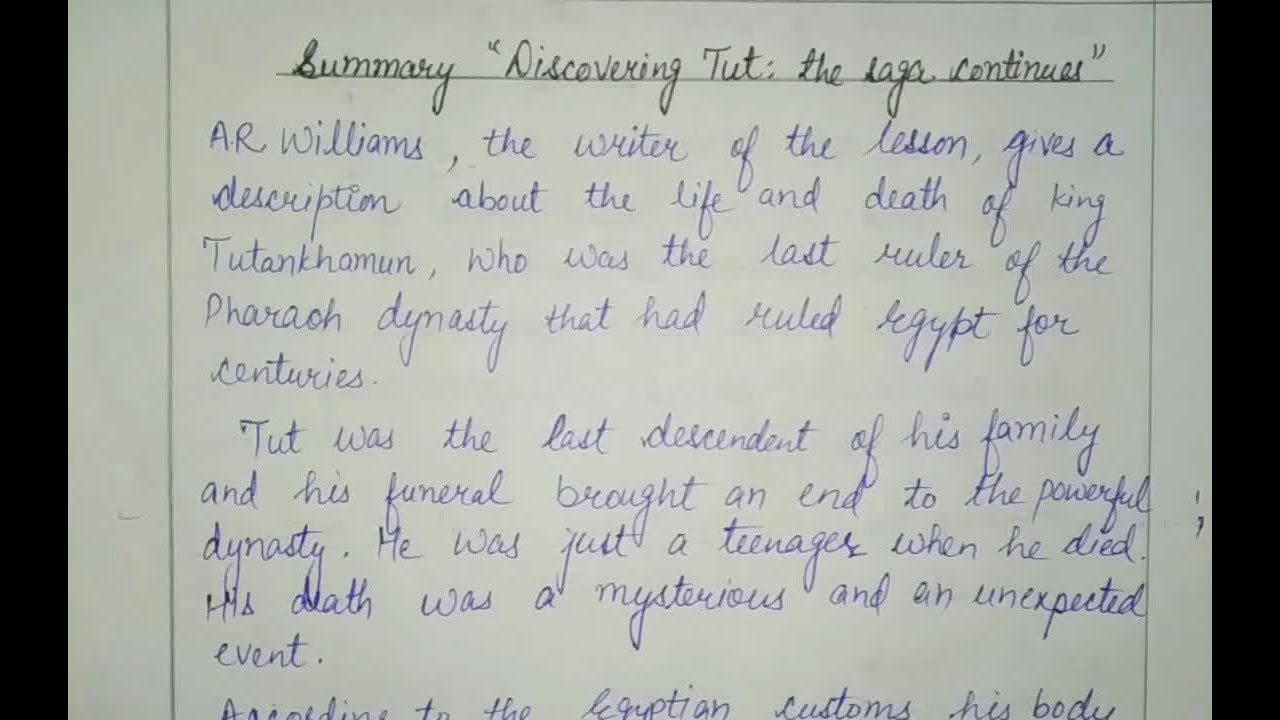 Summary "Discovering Tut: the saga continues"
A.R Williams, the writer of the lesson, gives a
description about the life and death of king
Tutankhamun, who was the last ruler of the
Pharaoh dynasty that had ruled Egypt for
centuries.
Tut was the last descendent of his family
and his funeral brought an end to the powerful
dynasty. He was just a teenager when he died.
His death was a mysterious and an unexpected
event.
According to the Egyptian customs his body